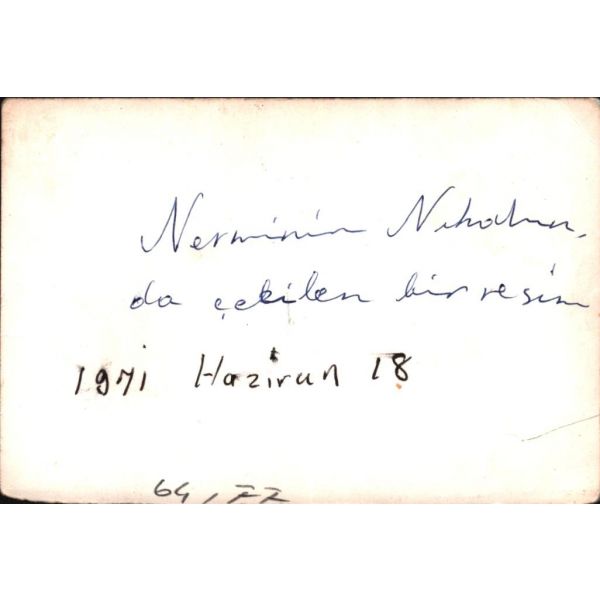 Nerminin Nikahın,
da çekilen bir resim
1971 Haziran 18
64,77